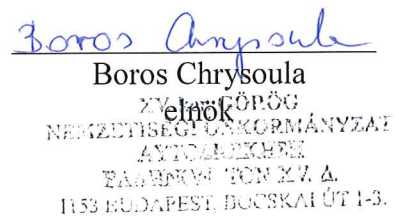 Boros Chrysoula
Boros Chrysoula
elnök
XV. ker. GÖRÖG
NEMZETISÉGI ÖNKORMÁNYZAT
ΤΟΝ XV. Δ.
1153 BUDAPEST, BOCSKAI ÚT 1-3.